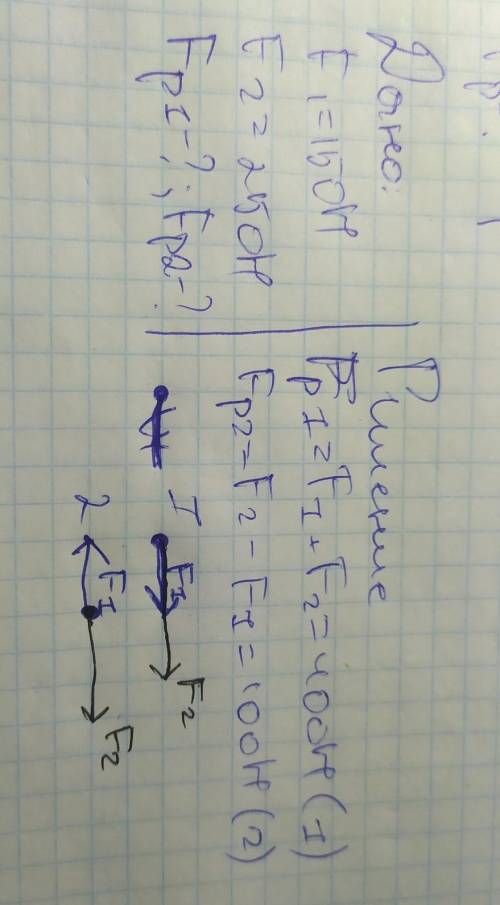 Дано:
F₁=150Н
F₂=250Н
Fр1-?; Fр2-?
Решение
Fр1=F1+F2=400Н(1)
Fр2=F2-F1=100Н(2)
1 F1 F2
2 F1 F2